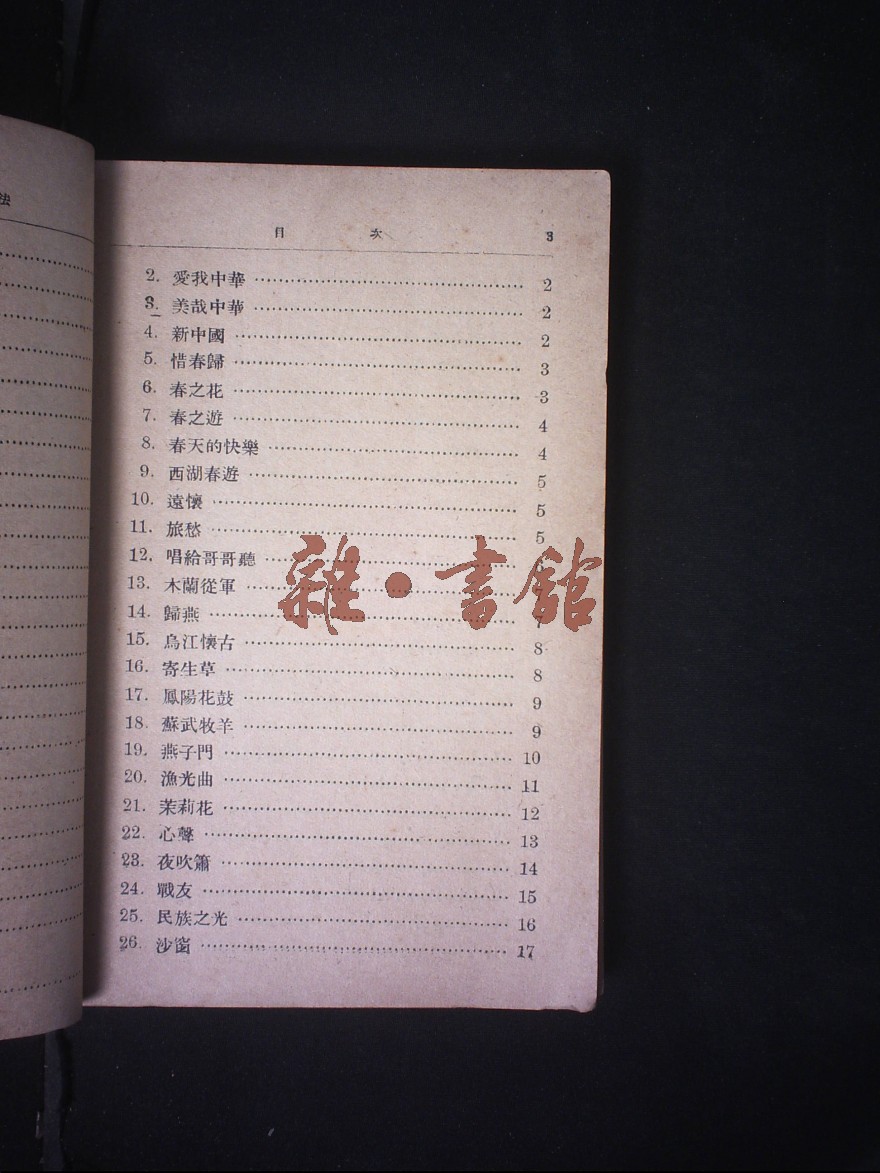 法
目 次 3
2. 愛我中華 2
3. 美哉中華 2
4. 新中國 2
5. 惜春歸 3
6. 春之花 3
7. 春之遊 4
8. 春天的快樂 4
9. 西湖春遊 5
10. 遠懷 5
11. 旅愁 5
12. 唱給哥哥聽
13. 木蘭從軍
14. 歸燕 7
15. 烏江懷古 8
16. 寄生草 8
17. 鳳陽花鼓 9
18. 蘇武牧羊 9
19. 燕子門 10
20. 漁光曲 11
21. 茉莉花 12
22. 心聲 13
23. 夜吹簫 14
24. 戰友 15
25. 民族之光 16
26. 沙窗 17
雜·書館